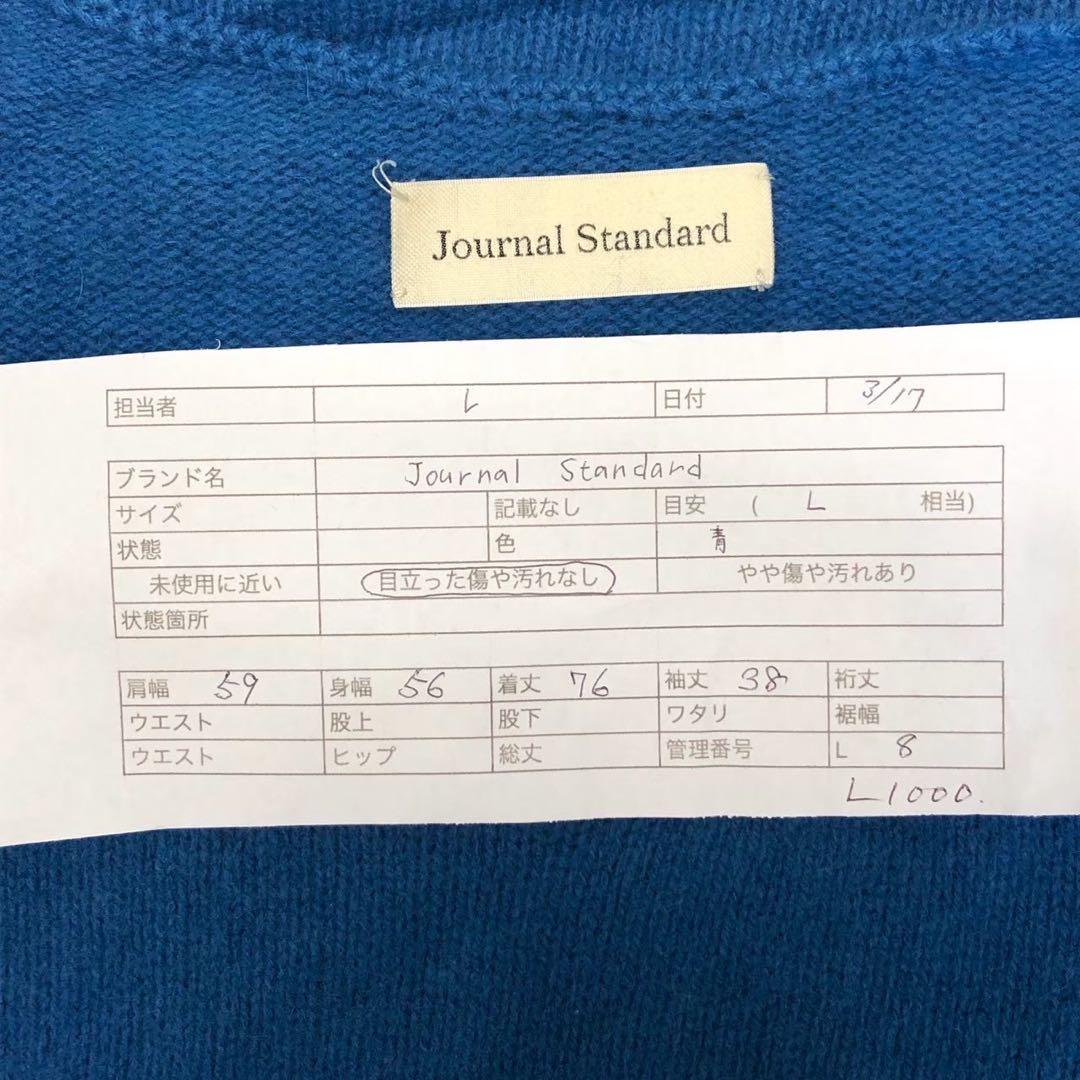 Journal Standard
担当者 L 日付 3/17
ブランド名 Journal Standard
サイズ 記載なし 目安 ( L 相当)
状態 色 青
未使用に近い 目立った傷や汚れなし やや傷や汚れあり
状態箇所
肩幅 59 身幅 56 着丈 76 袖丈 38 裄丈
ウエスト 股上 股下 ワタリ 裾幅
ウエスト ヒップ 総丈 管理番号 L 8
L1000.